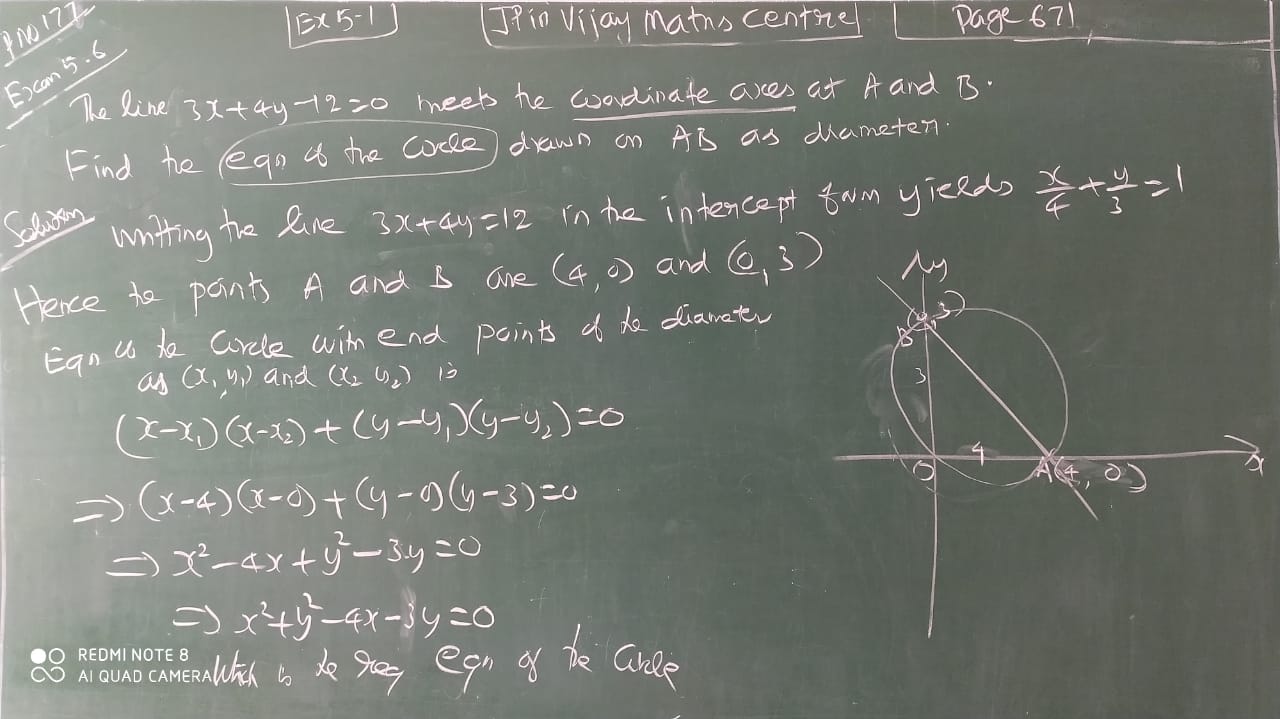 PNO 177
Ex 5-1
JPin Vijay Maths Centre
Page 671
Exam 5.6
The line 3x+4y-12=0 meets the coordinate axes at A and B.
Find the eqn of the circle drawn on AB as diameter.
Solution
writting the line 3x+4y=12 in the intercept form yields x/4 + y/3 = 1
Hence the points A and B are (4,0) and (0,3)
Eqn of the circle with end points of the diameter
as (x₁ y₁) and (x₂ y₂) is
(x-x₁)(x-x₂)+(y-y₁)(y-y₂)=0
⇒ (x-4)(x-0)+(y-0)(y-3)=0
⇒ x²-4x+y²-3y=0
⇒ x²+y²-4x-3y=0
Which is the req eqn of the circle
y
B
(0,3)
3
O
4
A(4,0)
x
REDMI NOTE 8
AI QUAD CAMERA